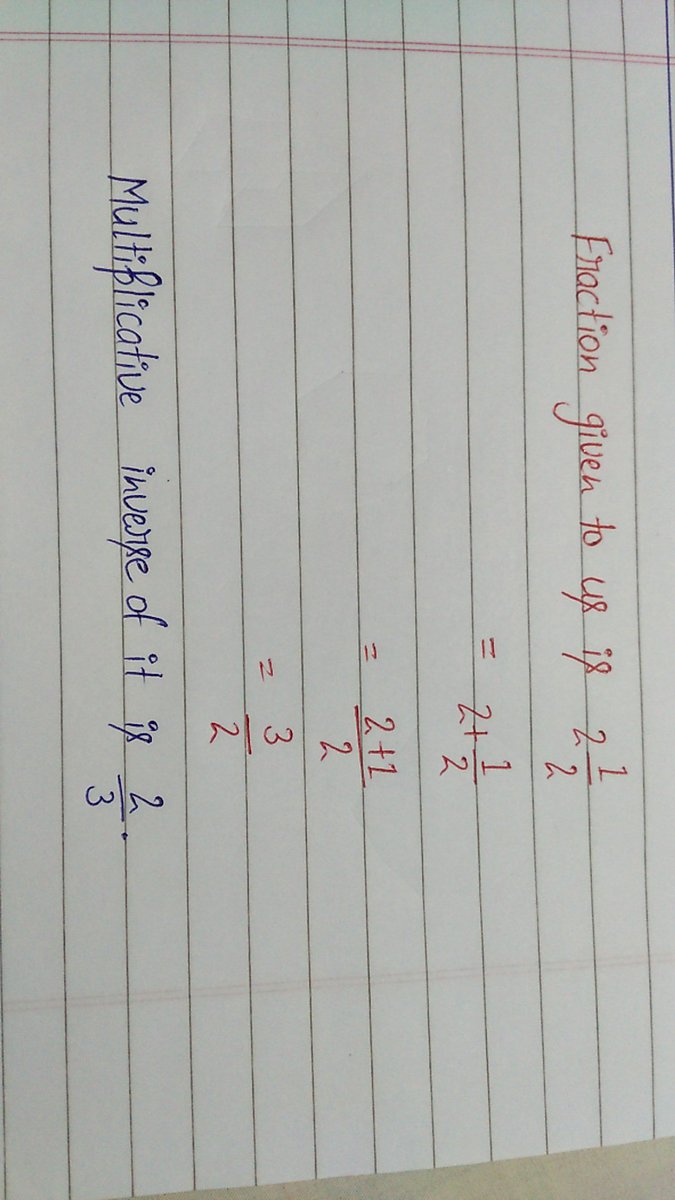 Fraction given to us is 2 1/2
= 2+1/2
= 2+1/2
= 3/2
Multiplicative inverse of it is 2/3.